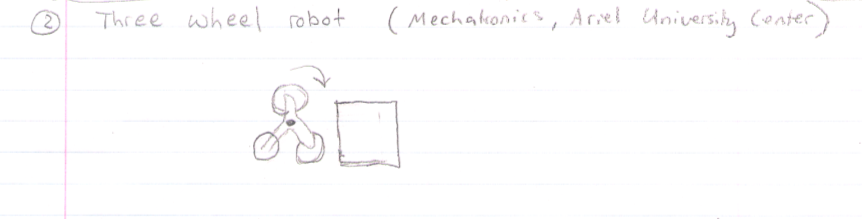 ② Three wheel robot (Mechatronics, Ariel University Center)